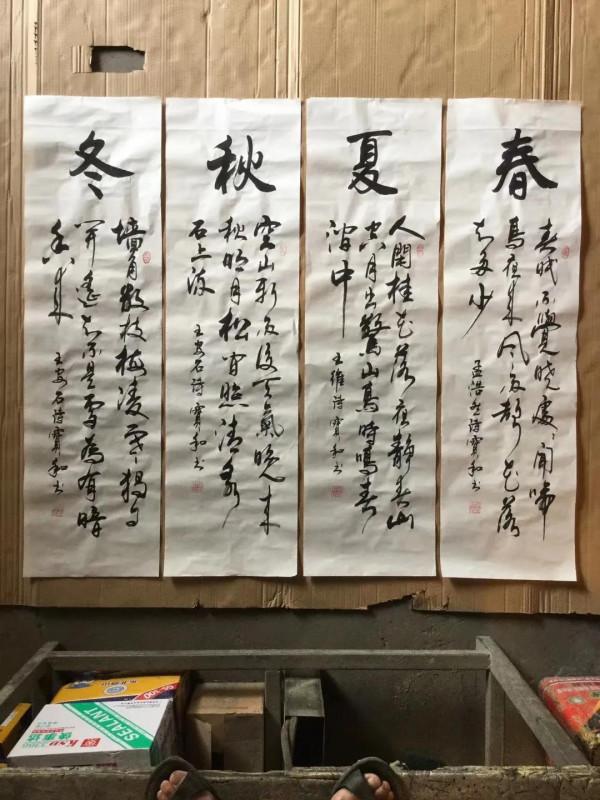 春
春眠不覺曉處々聞啼
鳥夜来风雨聲花落
知多少
孟浩然诗寶和书
夏
人閒桂花落夜静春山
空月出驚山鳥時鳴春
澗中
王維诗寶和书
秋
空山新雨後天氣晚来
秋明月松间照清泉
石上流
王安石诗寶和书
冬
墙角数枝梅凌寒獨自
开遥知不是雪為有暗
香来
王安石诗寶和书
SEALANT
KSD